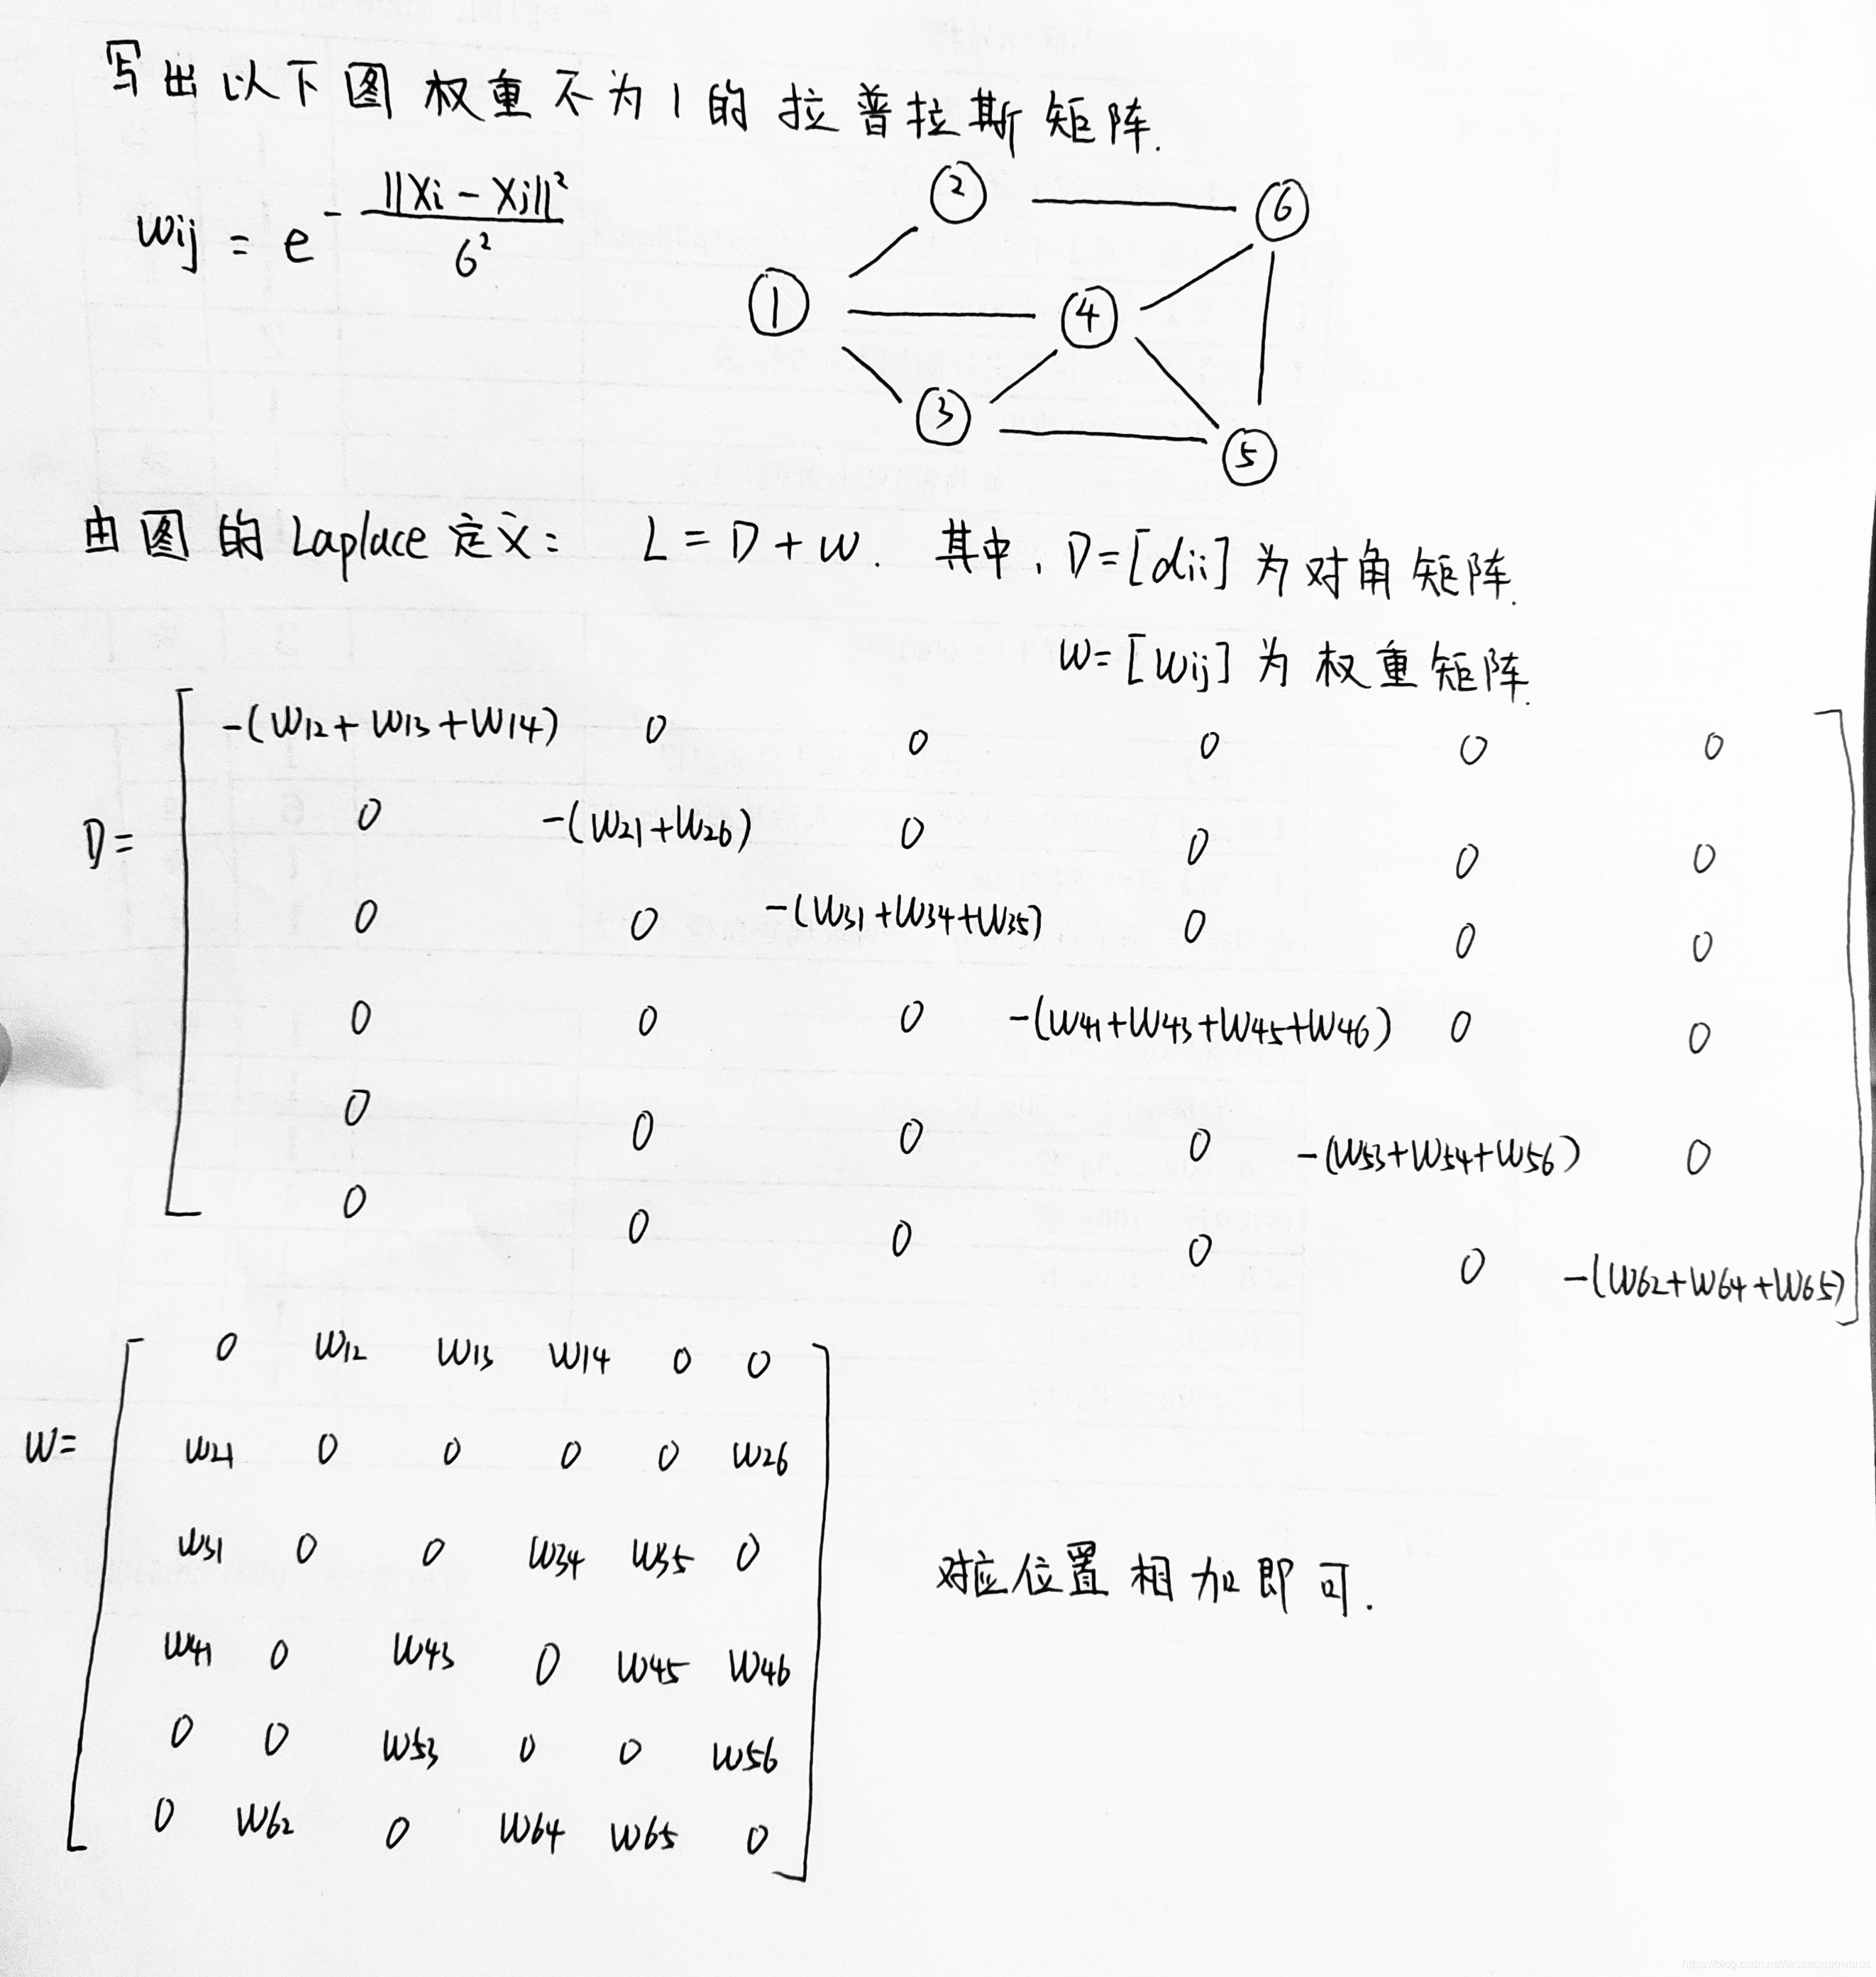 写出以下图权重不为1的拉普拉斯矩阵.
wij = e^{-||Xi - Xj||²/6²}
②
⑥
①
④
③
⑤
由图的Laplace定义: L = D + W. 其中, D=[dii]为对角矩阵.
W=[wij]为权重矩阵.
D=
-(W12+W13+W14) 0 0 0 0 0
0 -(W21+W26) 0 0 0 0
0 0 -(W31+W34+W35) 0 0 0
0 0 0 -(W41+W43+W45+W46) 0 0
0 0 0 0 -(W53+W54+W56) 0
0 0 0 0 0 -(W62+W64+W65)
W=
0 W12 W13 W14 0 0
W21 0 0 0 0 W26
W31 0 0 W34 W35 0
W41 0 W43 0 W45 W46
0 0 W53 0 0 W56
0 W62 0 W64 W65 0
对应位置相加即可.
https://blog.csdn.net/laozaoxiaowanzi